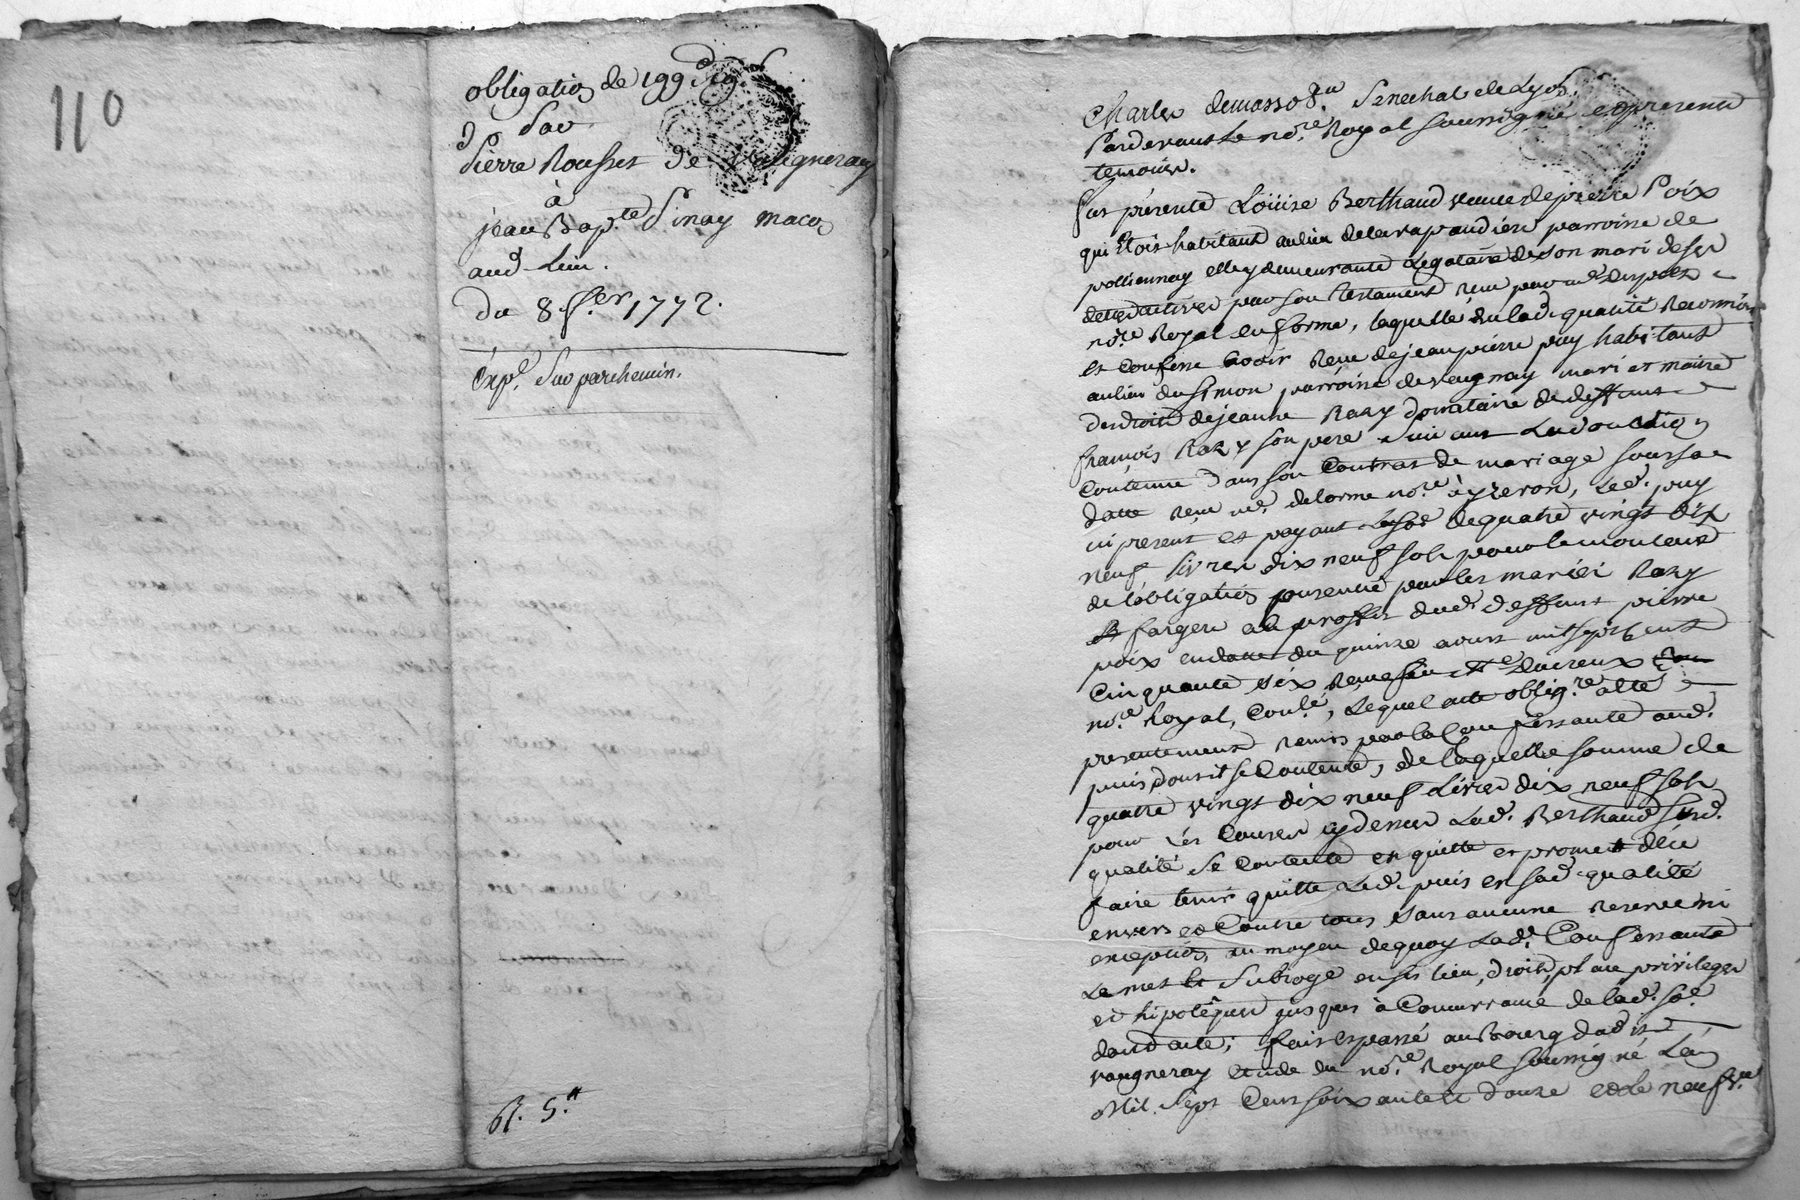 110
obligation de 199# 19s
par
Pierre Rousset de Vaugneray
à
jean Bapte. Pinay macon
aud. lieu.
du 8 fer. 1772.
Exp. sur parchemin.
Charles demasso Sénéchal de Lyon.
Pardevant le nore. Royal soussigné et présents
temoins.
fut présente Loüise Berthaud veuve de pierre Poix
qui étoit habitant au lieu de parroisse de
pollionnay elle y demeurante Legataire de son mari de ses
dettes actives par son testament reçu par me.
nore. Royal en forme, laquelle en lad. qualité
et confesse avoir reçu de jean pierre puy habitant
au lieu du simon parroisse de vaugneray mari et maitre
des droits de jeanne Razy donataire de deffunt
françois Razy son pere suivant La donation
contenue dans son Contrat de mariage sous sa
datte reçu me. delorme nore. à yzeron, Led. puy
ici present et payant La so. de quatre vingt dix
neuf livres dix neuf sols pour le montant
de l'obligation consentie par les mariés Razy
et farges au proffit dud. deffunt pierre
poix en datte du quinze aoust mil sept cent
Cinquante six reçue feu me. ducreux
nore. Royal, Conlé, Lequel acte oblig.re a été
presentement remis par la Confessante aud.
puis, dont il se Contente, de laquelle somme de
quatre vingt dix neuf Livres dix neuf sols
pour les causes cy dessus Lad. Berthaud susd.
qualité se Contente en quitte et promet d'en
faire tenir quitte Led. puis en sad. qualité
envers et Contre tous sans aucune reserve ni
exception, au moyen de quoy Lad. Confessante
Le met et subroge en ses lieu, droits, place privileges
et hipotêques jusques à Concurrance de lad. so.
dont acte; fait et passé au Bourg dudit
vaugneray etude du nore. Royal soussigné L'an
Mil Sept Cent soixante et douze et le neuf